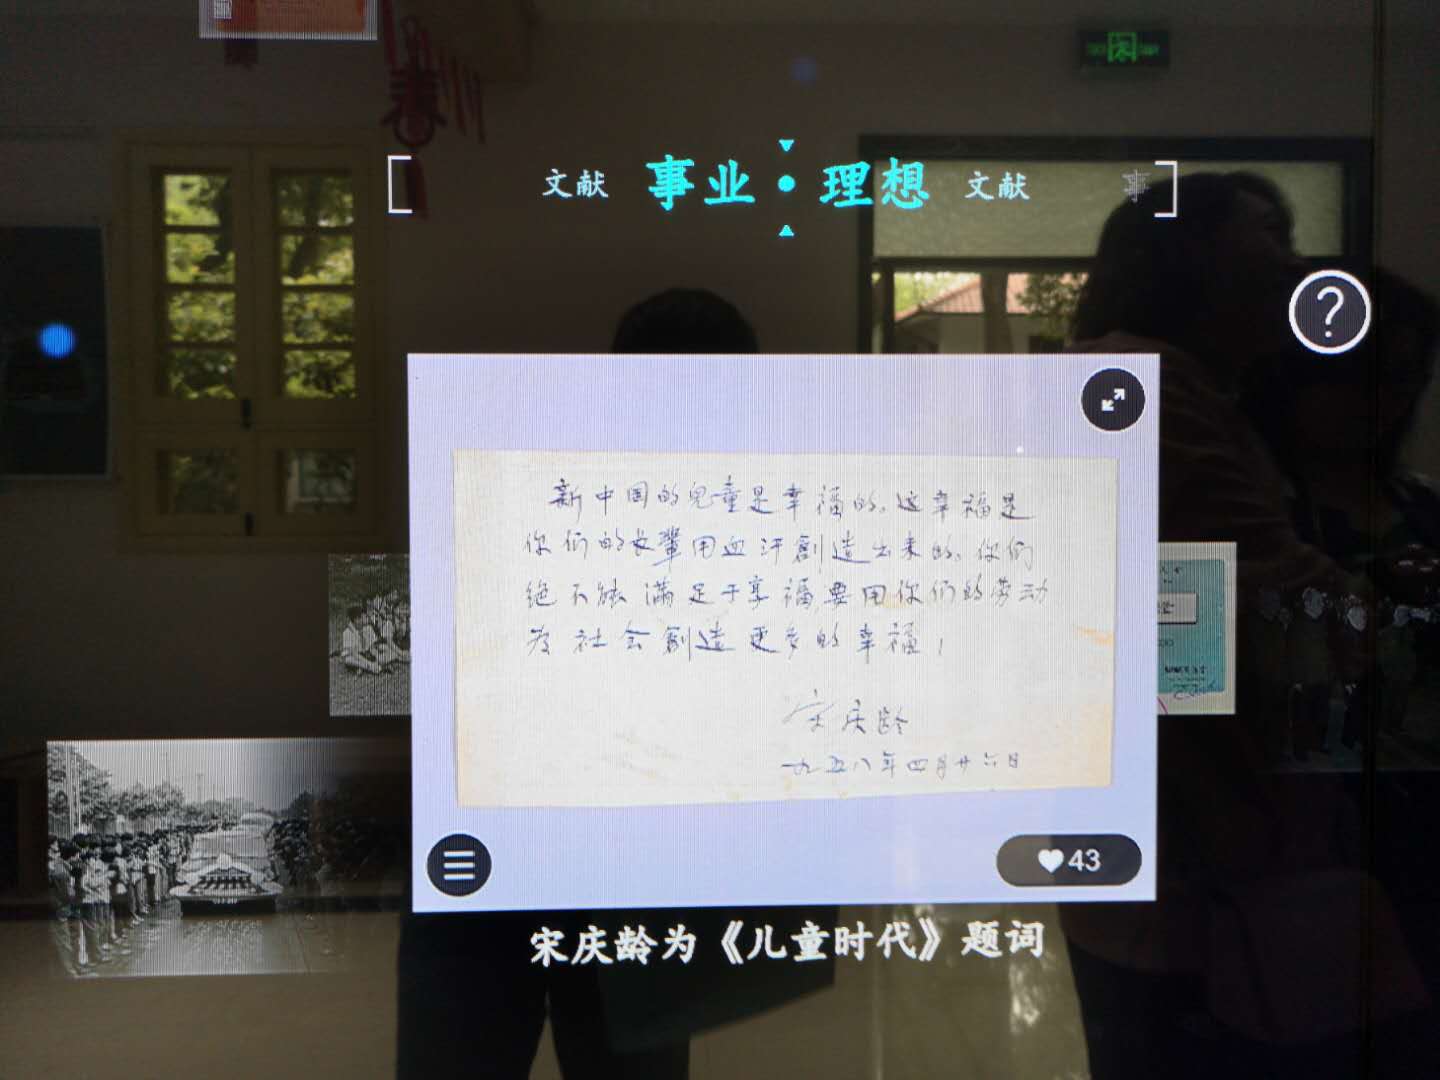 文献 事业·理想 文献 事
新中国的儿童是幸福的。这幸福是
你们的长輩用血汗創造出来的。你们
绝不能满足于享福要用你们的劳动
为社会創造更多的幸福！
宋庆龄
一九五八年四月廿六日
43
宋庆龄为《儿童时代》题词